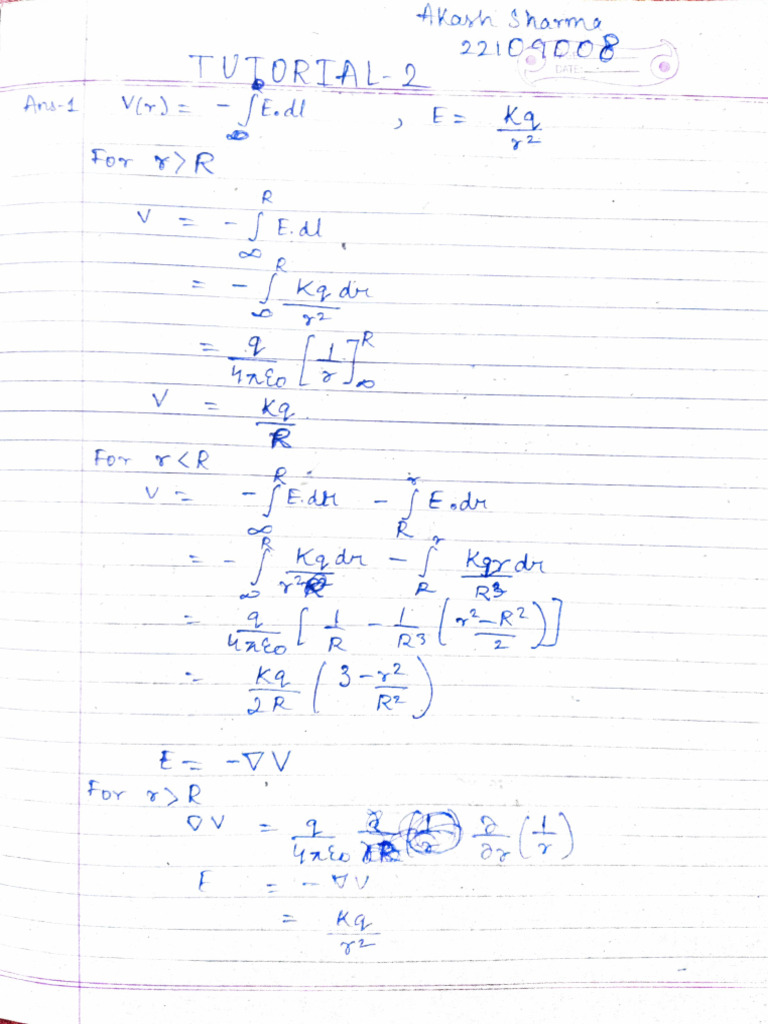 Akash Sharma
22109008
DATE
TUTORIAL-2
Ans-1 V(r) = - ∫_∞ E.dl , E = Kq/r²
For r>R
V = - ∫_∞^R E.dl
= - ∫_∞^R Kq dr/r²
= q/4πε₀ [1/r]_∞^R
V = Kq/R
For r<R
V = - ∫_∞^R E.dr - ∫_R^r E.dr
= - ∫_∞^R Kq dr/r² - ∫_R^r Kqr dr/R³
= q/4πε₀ [1/R - 1/R³ (r²-R²/2)]
= Kq/2R (3 - r²/R²)
E = -∇V
For r>R
∇V = q/4πε₀ ∂/∂r (1/r)
E = -∇V
= Kq/r²